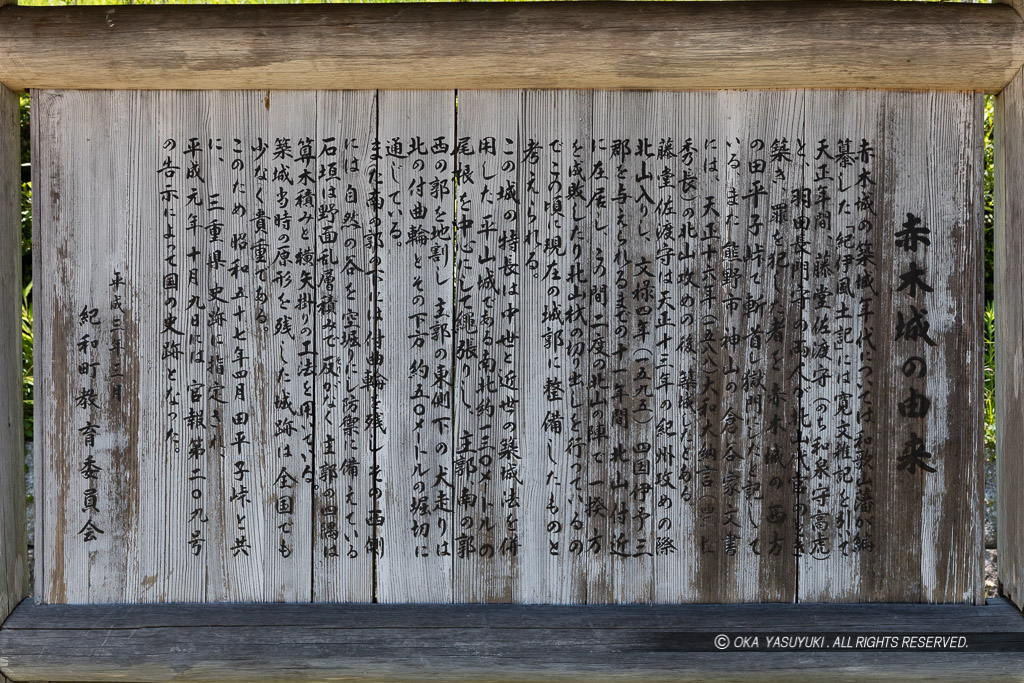 赤木城の由来
赤木城の築城年代については和歌山藩が編
纂した「紀伊風土記」には寛文雑記を引いて
天正年間 藤堂佐渡守(のち和泉守高虎)
と、羽田長門守の両人の北山代官のとき
築き、罪を犯した者を赤木城の西方
の田平子峠で斬首し獄門したと記して
いる。また 熊野市 神山の倉谷家文書
には、天正十六年(一五八八)大和大納言(豊臣
秀長)の北山攻めの後 築城したとある。
藤堂佐渡守は天正十三年の紀州攻めの際
北山入りし、文禄四年(一五九五)四国伊予三
郡を与えられるまでの十一年間 北山付近
に在居し この間 二度の北山の陣で一揆方
を成敗したり北山材の切り出しを行っているの
でこの頃に現在の城郭に整備したものと
考えられる。
この城の特長は中世と近世の築城法を併
用した平山城である南北約一三〇メートルの
尾根を中心にして縄張りし、主郭、南の郭
西の郭を地割し 主郭の東側下の犬走りは
北の付曲輪とその下方 約五〇メートルの堀切に
通じている。
また南の郭の下には付曲輪を残し その西側
には 自然の谷を 空堀りにし防禦に備えている
石垣は野面乱層積みで反がなく 主郭の四隅は
算木積みと横矢掛りの工法を用いている。
築城当時の原形を残した城跡は全国でも
少なく貴重である。
このため 昭和 五十七年四月 田平子峠と共
に、三重県史跡に指定され、
平成元年十月九日には官報第二〇九号
の告示によって国の史跡となった。
平成三年三月
紀和町教育委員会
© OKA YASUYUKI. ALL RIGHTS RESERVED.